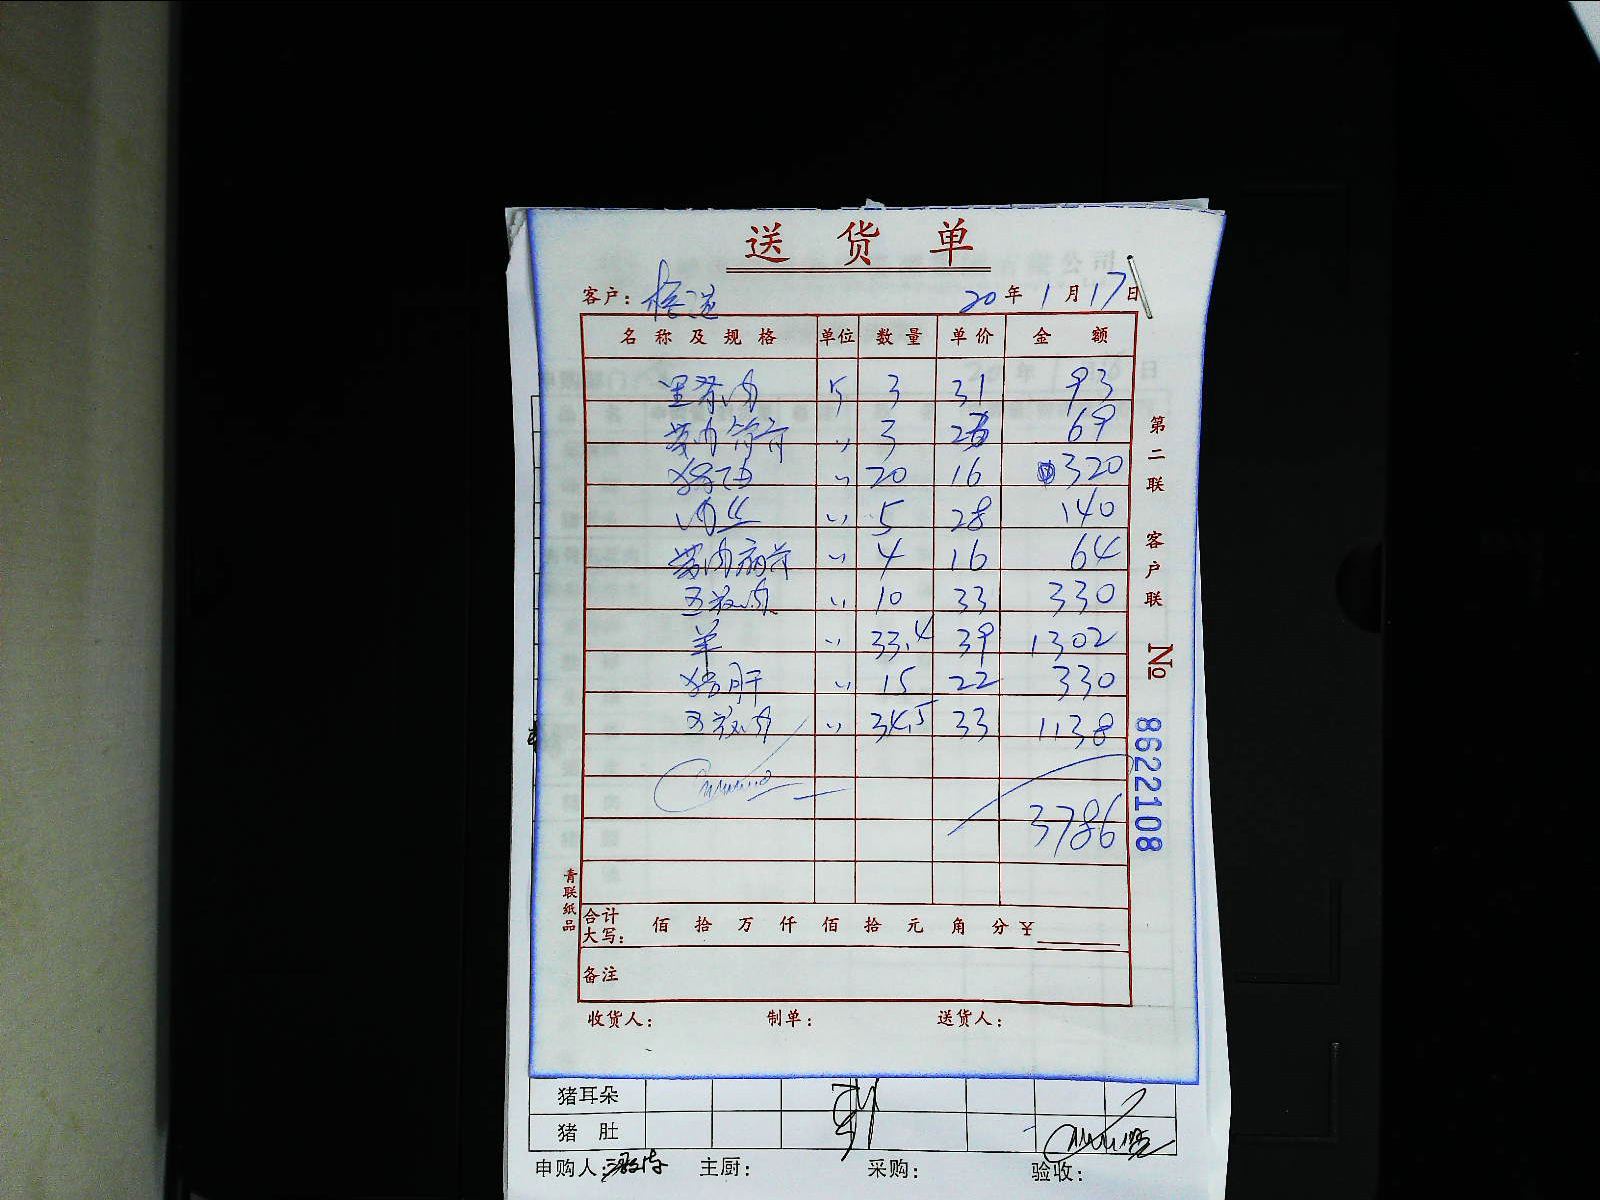 送货单
客户： 20年1月17日
名称及规格 单位 数量 单价 金额
里脊肉 斤 3 31 93
带肉筒骨 〃 3 23 69
猪 〃 20 16 320
肉丝 〃 5 28 140
带肉扇骨 〃 4 16 64
五花肉 〃 10 33 330
羊 〃 33.4 39 1302
猪肝 〃 15 22 330
五花肉 〃 34.5 33 1138
3786
合计大写： 佰 拾 万 仟 佰 拾 元 角 分 ¥
备注
收货人： 制单： 送货人：
第二联 客户联
No 8622108
青联纸品
猪耳朵
猪肚
申购人： 主厨： 采购： 验收：